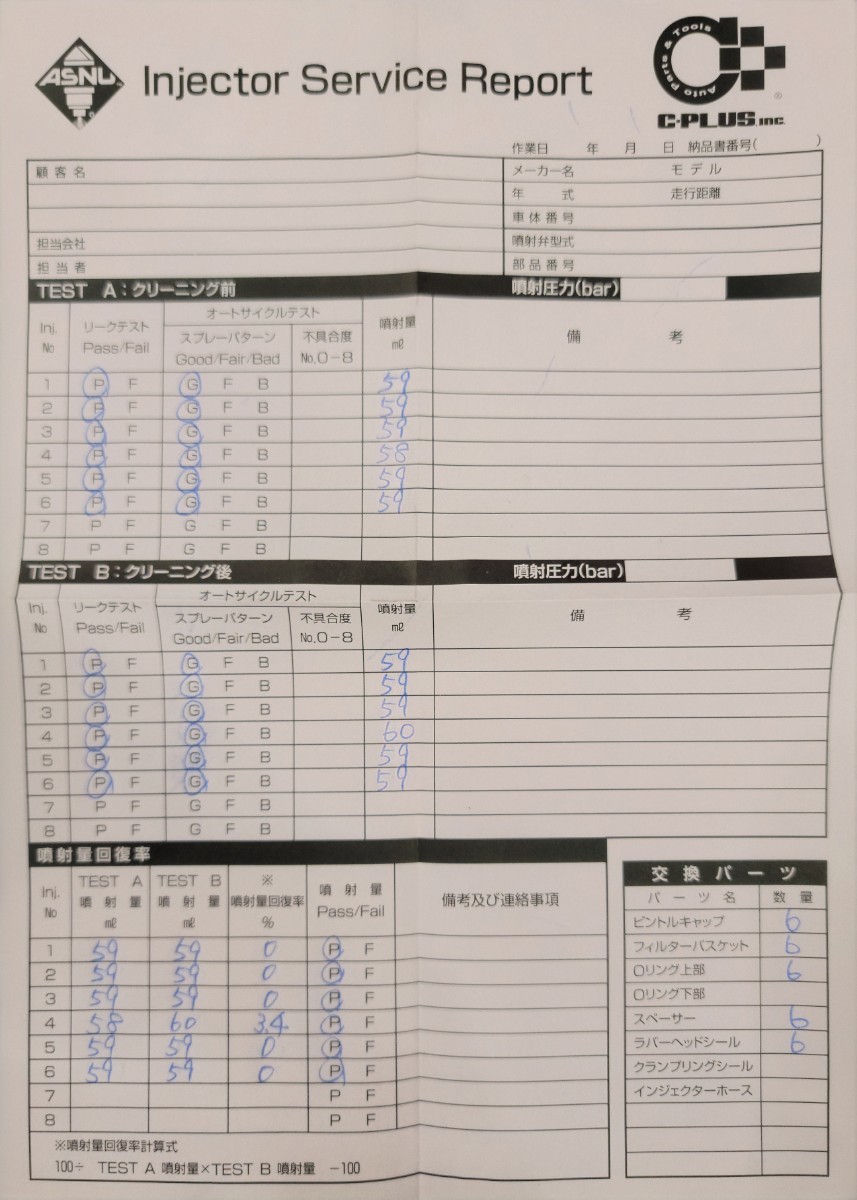 ASNU
Injector Service Report
Auto Parts & Tools
®
C-PLUS, inc.
作業日 年 月 日 納品書番号( )
顧客名
メーカー名 モデル
年 式 走行距離
車体番号
担当会社
噴射弁型式
担当者
部品番号
TEST A:クリーニング前 噴射圧力(bar)
Inj. No リークテスト Pass/Fail オートサイクルテスト スプレーパターン Good/Fair/Bad 不具合度 No.0-8 噴射量 mℓ 備 考
1 P F G F B 59
2 P F G F B 59
3 P F G F B 59
4 P F G F B 58
5 P F G F B 59
6 P F G F B 59
7 P F G F B
8 P F G F B
TEST B:クリーニング後 噴射圧力(bar)
Inj. No リークテスト Pass/Fail オートサイクルテスト スプレーパターン Good/Fair/Bad 不具合度 No.0-8 噴射量 mℓ 備 考
1 P F G F B 59
2 P F G F B 59
3 P F G F B 59
4 P F G F B 60
5 P F G F B 59
6 P F G F B 59
7 P F G F B
8 P F G F B
噴射量回復率
Inj. No TEST A 噴射量 mℓ TEST B 噴射量 mℓ ※ 噴射量回復率 % 噴射量 Pass/Fail 備考及び連絡事項
1 59 59 0 P F
2 59 59 0 P F
3 59 59 0 P F
4 58 60 3.4 P F
5 59 59 0 P F
6 59 59 0 P F
7 P F
8 P F
※噴射量回復率計算式
100÷ TEST A 噴射量×TEST B 噴射量 -100
交換パーツ
パーツ名 数量
ピントルキャップ 6
フィルターバスケット 6
Oリング上部 6
Oリング下部
スペーサー 6
ラバーヘッドシール 6
クランプリングシール
インジェクターホース